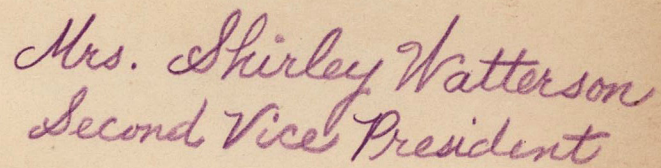 Mrs. Shirley Watterson
Second Vice President